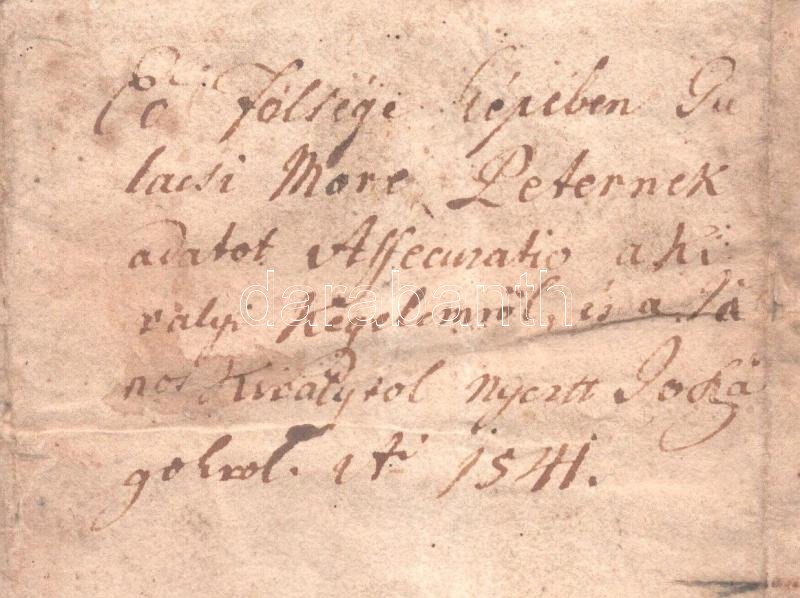 Eö Fölsége képében Gu
lacsi More Peternek
adatot Assecuratio a Ki
rályi Kegyelemröl, és a Já
nos Királytol nyertt Joszá
gokrol. 1ti 1541.
darabanth